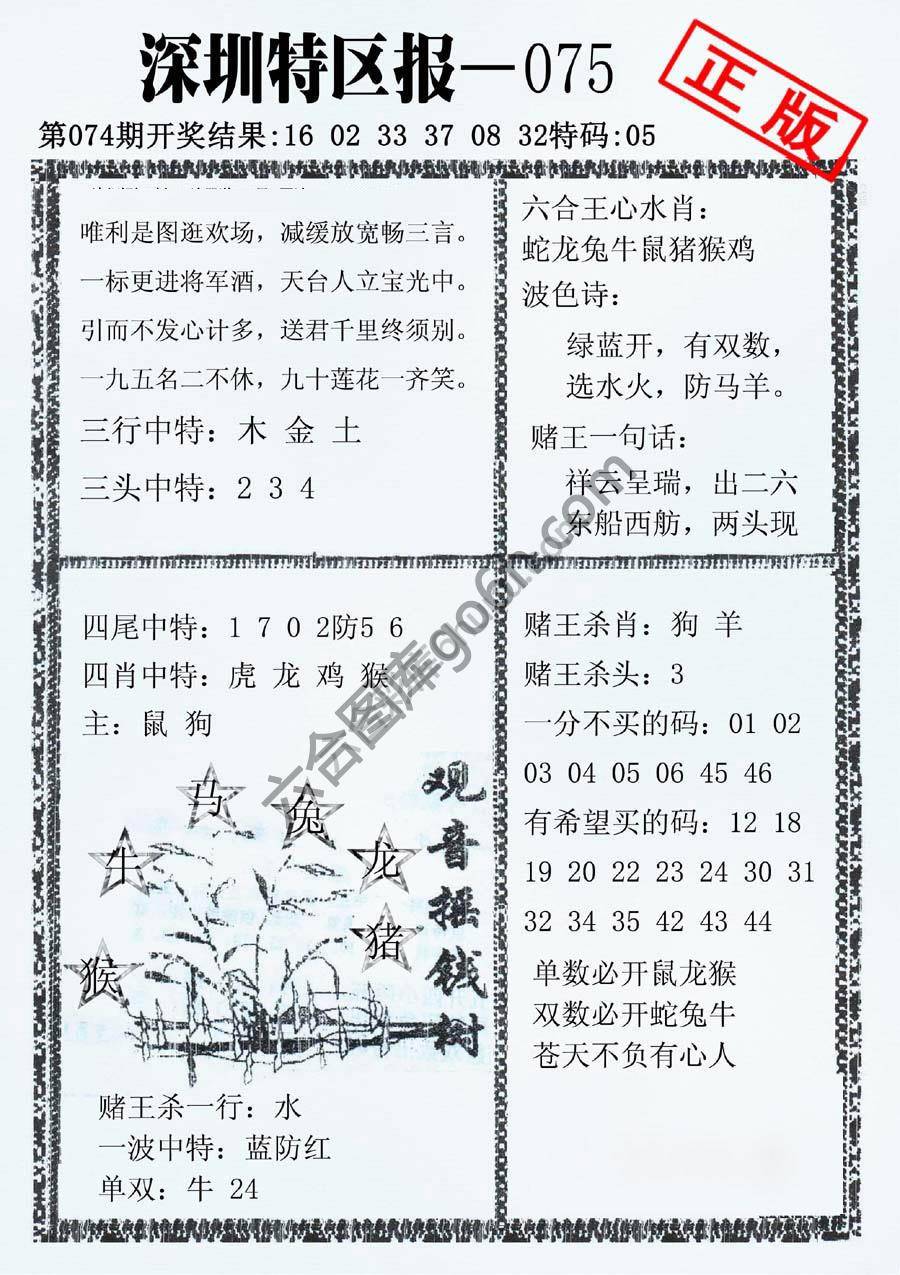 深圳特区报—075
正版
第074期开奖结果:16 02 33 37 08 32特码:05
唯利是图逛欢场，减缓放宽畅三言。
一标更进将军酒，天台人立宝光中。
引而不发心计多，送君千里终须别。
一九五名二不休，九十莲花一齐笑。
三行中特：木 金 土
三头中特：2 3 4
六合王心水肖：
蛇龙兔牛鼠猪猴鸡
波色诗：
绿蓝开，有双数，
选水火，防马羊。
赌王一句话：
祥云呈瑞，出二六
东船西舫，两头现
四尾中特：1 7 0 2防5 6
四肖中特：虎 龙 鸡 猴
主：鼠 狗
马
兔
牛
龙
猪
猴
观音摇钱树
赌王杀一行：水
一波中特：蓝防红
单双：牛 24
赌王杀肖：狗 羊
赌王杀头：3
一分不买的码：01 02
03 04 05 06 45 46
有希望买的码：12 18
19 20 22 23 24 30 31
32 34 35 42 43 44
单数必开鼠龙猴
双数必开蛇兔牛
苍天不负有心人